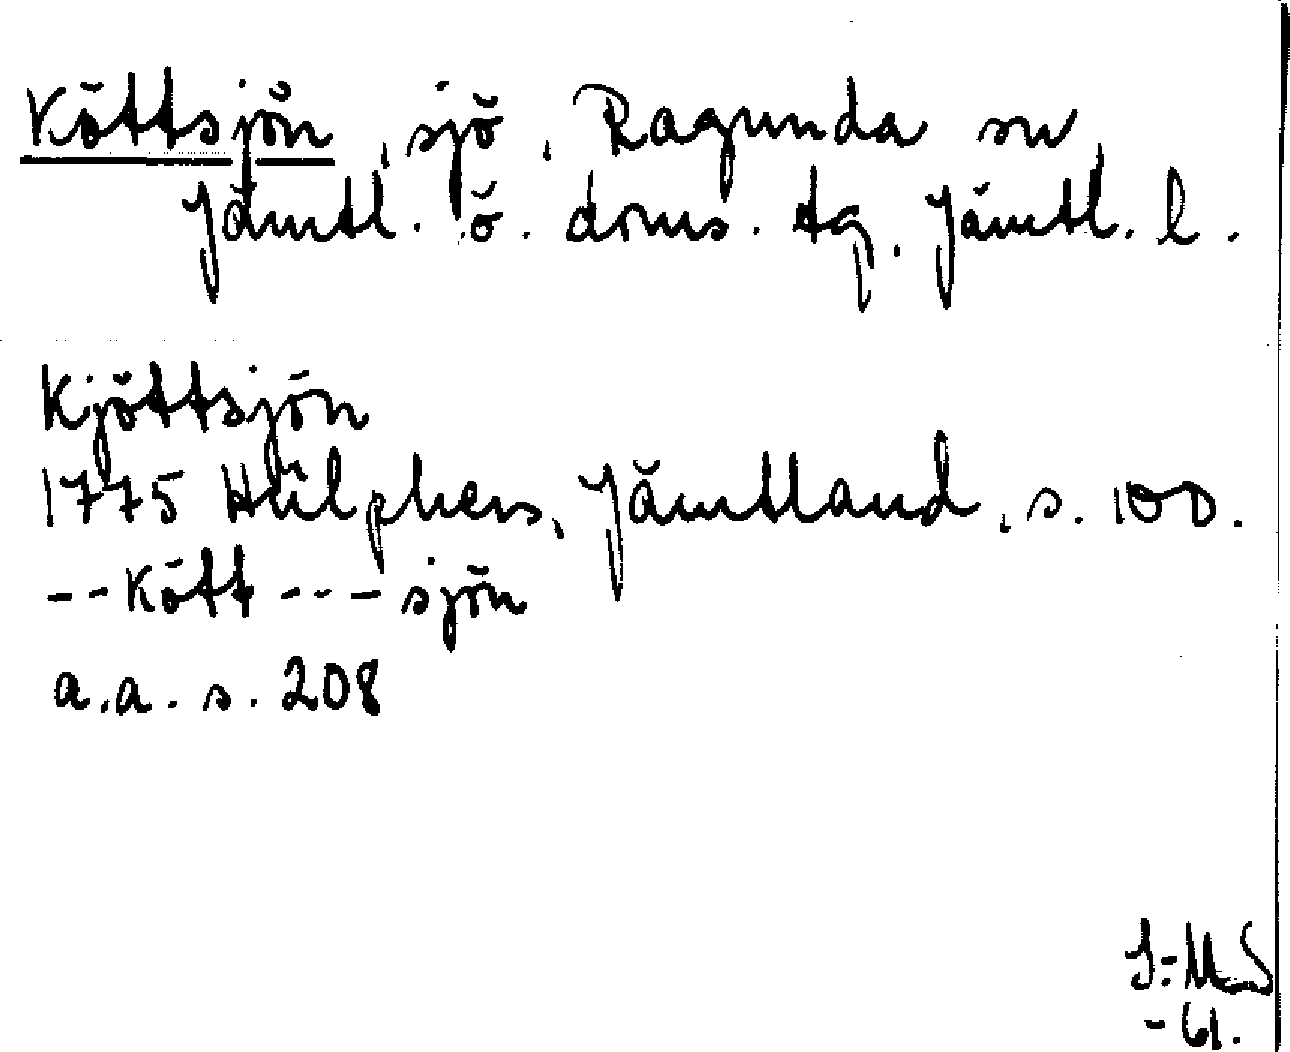 Köttsjön, sjö, Ragunda sn,
Jämtl. ö. doms. tg. Jämtl. l.
Kjöttsjön
1775 Hülphers, Jämtland, s. 100.
--Kött --- sjön
a.a. s. 208
I-MS
-61.